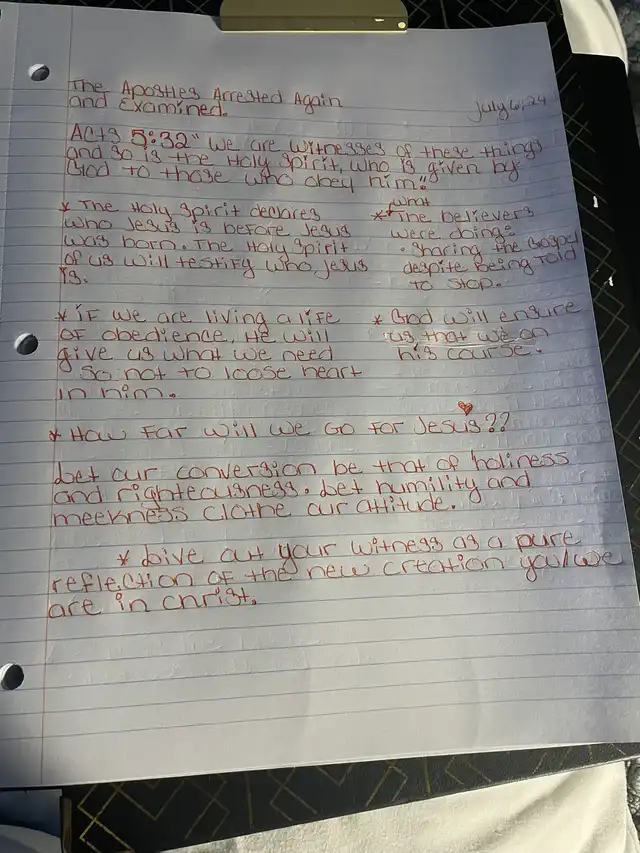 The Apostles Arrested Again
and Examined.
July 6, 24
Acts 5:32 "We are witnesses of these things
and so is the Holy Spirit, who is given by
God to those who obey him."
* The Holy Spirit declares
who Jesus is before Jesus
was born. The Holy Spirit
of us will testify who Jesus
is.
what
* The believers
were doing:
• Sharing the Gospel
despite being told
to stop.
* if we are living a life
of obedience, He will
give us what we need
so not to loose heart
in him.
* God will ensure
us that we on
his course.
* How far will we go for Jesus??
Let our conversion be that of holiness
and righteousness. Let humility and
meekness clothe our attitude.
* Live out your witness as a pure
reflection of the new creation you/we
are in Christ.